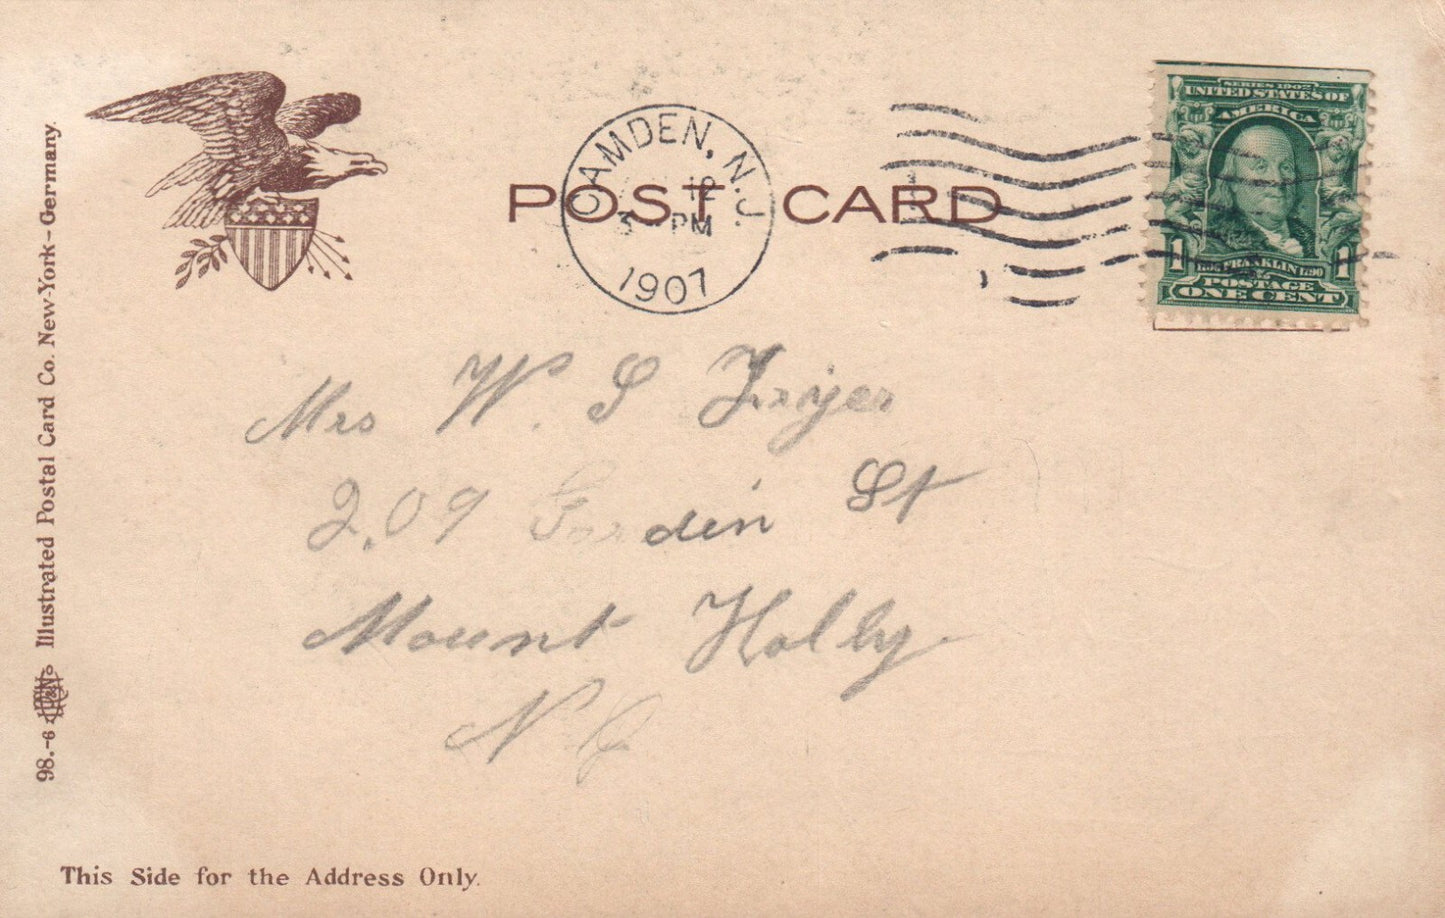 POST CARD
CAMDEN, N.J.
12
3 PM
1907
SERIES 1902
UNITED STATES OF
AMERICA
1 FRANKLIN 1790 1
POSTAGE
ONE CENT
Mrs W. S Fryer
209 Garden St
Mount Holly
N J
98.-6 Illustrated Postal Card Co. New-York-Germany.
This Side for the Address Only.